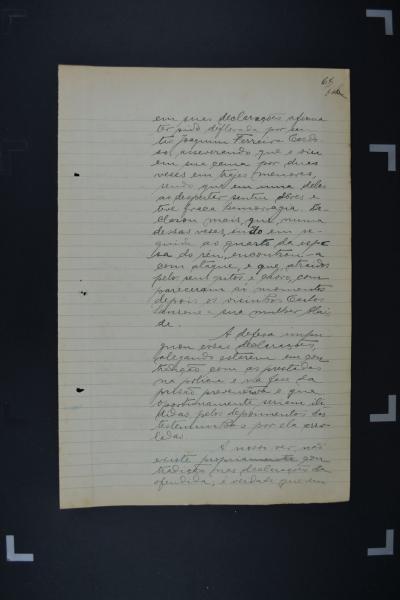 68
em suas declarações afirma
ter sido deflorada por seu
tio Joaquim Ferreira Cardo
so, asseverando que o viu
em sua cama por duas
veses em trajes menores,
sendo que em uma delas
ao despertar sentiu dôres e
teve fraca hemorragia. De
clarou mais, que numa
dessas veses, indo em se-
guida ao quarto da espo
sa do réu, encontrou-a
com ataque, e que, atraidos
pelos seus gritos e chôro, com
pareceram ai momentos
depois os visinhos Carlos
e sua mulher Alai
de.
A defesa impu
gnou essas declarações,
alegando estarem em con
tradição com as prestadas
na policia e na fase da
prisão preventiva e que
oportunamente seriam
pelos depoimentos das
testemunhas por ela arro
ladas.
A nosso ver, não
existe propriamente con
tradição nas declarações da
ofendida; é verdade que em